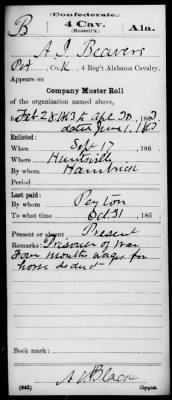 Confederate.
B 4 Cav. Ala.
(Russell's.)
A. J. Beavers
Pvt, Co. K, 4 Reg't Alabama Cavalry.
Appears on
Company Muster Roll
of the organization named above,
for Feb 28 1863 to Apl 30, 1863.
dated June 1, 1863
Enlisted:
When Sept 17, 186
Where Huntsville
By whom Hambrick
Period
Last paid:
By whom Peyton
To what time Oct 31, 186
Present or absent Present
Remarks: Prisoner of war
Four months wages for
horse deduct
Book mark:
(642) Copyist.